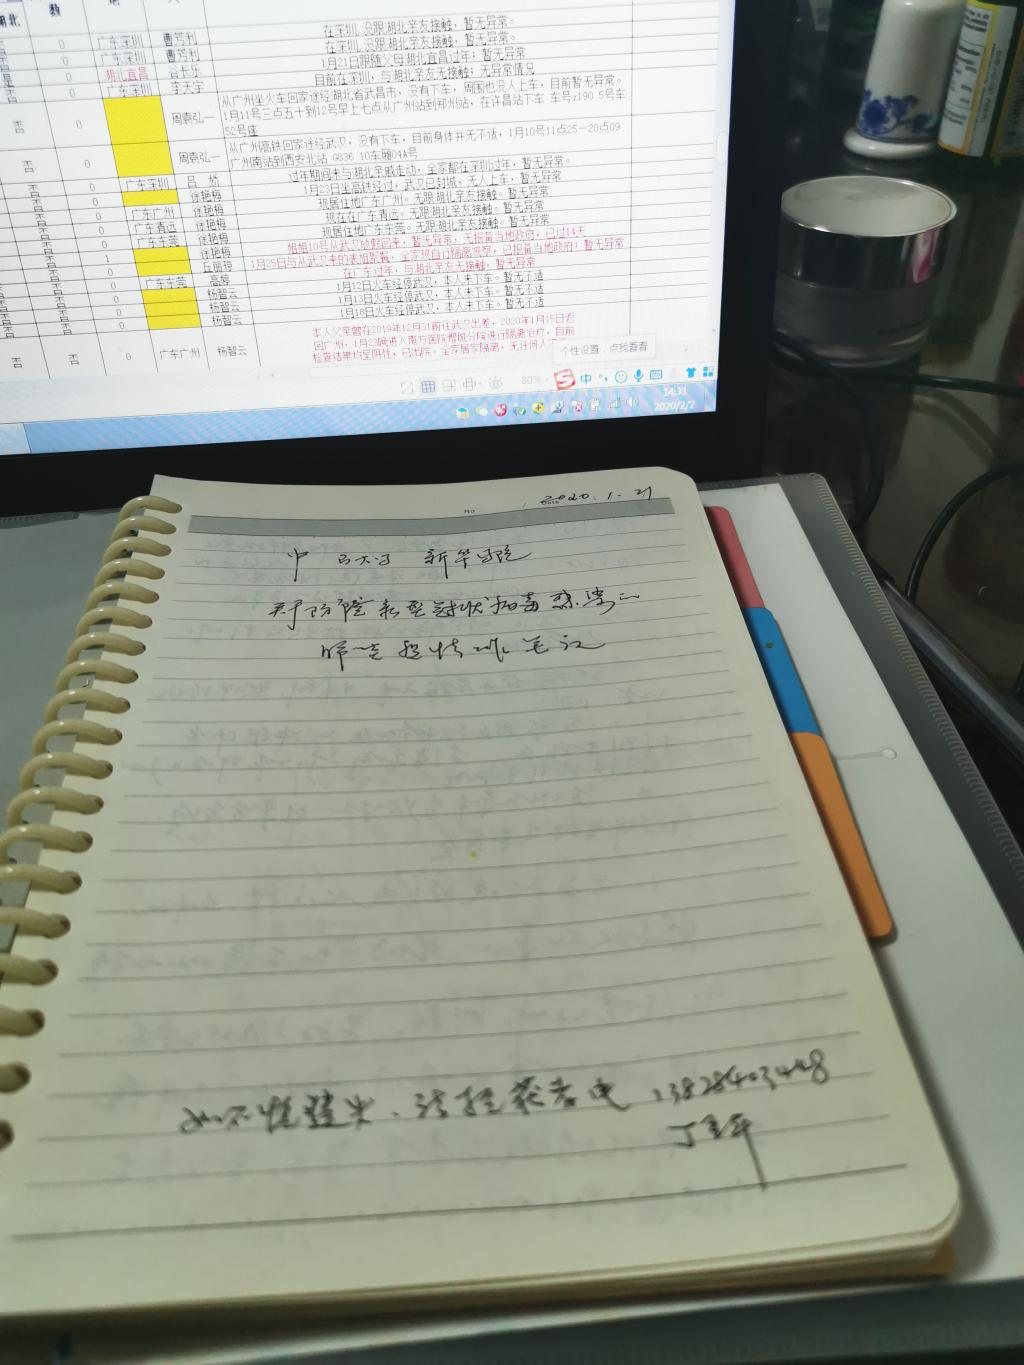 数
否 0 广东深圳 曹芳利 在深圳,没跟湖北亲友接触,暂无异常。
否 0 广东深圳 曹芳利 在深圳,没跟湖北亲友接触,暂无异常。
是 0 湖北宜昌 1月21日跟随父母湖北宜昌过年;暂无异常
否 0 广东深圳 李天宇 目前在深圳,与湖北亲友无接触;无异常情况
否 0 周袁弘一 从广州坐火车回家途经湖北省武昌市,没有下车,周围也没人上车,目前暂无异常。
1月11号三点五十到12号早上七点从广州站到郑州站,在许昌站下车 车号z190 5号车
52号座
否 0 周袁弘一 从广州高铁回家途经武汉,没有下车,目前身体并无不适,1月10号11点25-20点09
广州南站到西安北站 G836 10车厢04A号
否 0 广东深圳 吕娇 过年期间未与湖北亲戚走动,全家都在深圳过年,暂无异常。
否 0 徐艳梅 1月23日坐高铁经过,武汉已封城,无人上车,暂无异常
否 0 广东广州 徐艳梅 现居住地广东广州。无跟湖北亲友接触。暂无异常
否 0 广东清远 徐艳梅 现在在广东清远。无跟湖北亲友接触。暂无异常
否 0 广东东莞 徐艳梅 现居住地广东东莞。无跟湖北亲友接触。暂无异常
否 1 姐姐10号从武汉放假回来,暂无异常,无报备当地政府,已过14天
否 0 1月25日与从武汉来的表姐聚餐,全家现自行隔离观察,已报备当地政府;暂无异常
否 0 广东东莞 高婷 在广东过年,与湖北亲友无接触;暂无异常
否 0 杨智云 1月12日火车经停武汉,本人未下车。暂无不适
否 0 杨智云 1月13日火车经停武汉,本人未下车。暂无不适
否 0 杨智云 1月18日火车经停武汉,本人未下车。暂无不适
否 否 0 广东广州 杨智云 本人父亲曾在2019年12月31前往武汉出差,2020年1月15日返
回广州,1月23晚进入南方医院增城分院进行隔离治疗,目前
检查结果均呈阴性,已出院。全家居家隔离,无任何人
个性设置,点我看看
80%
中
14:31
2020/2/2
No
Date 2020.1.21
中山大学 新华学院
关于防控新型冠状病毒感染的
师生疫情工作笔记
如不慎遗失、请拾获者电 13828403448
丁